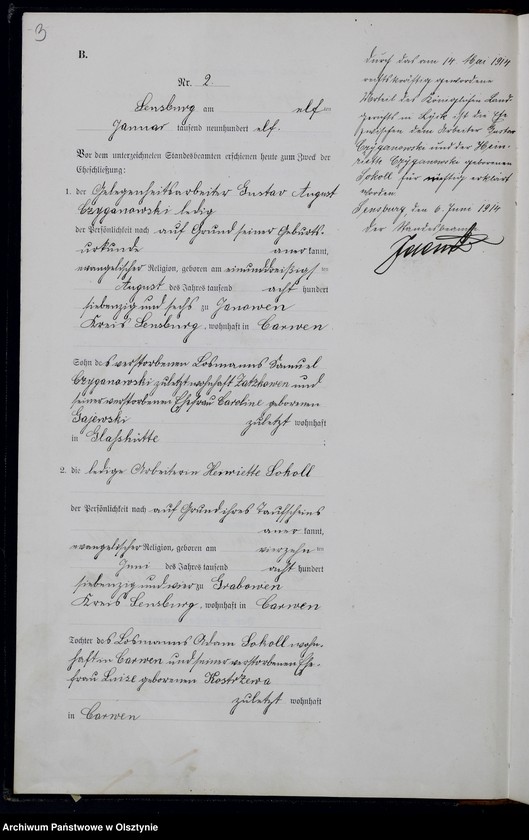 3
B.
Nr. 2.
Sensburg am elf ten
Januar tausend neunhundert elf.
Vor dem unterzeichneten Standesbeamten erschienen heute zum Zweck der
Eheschließung:
1. der Gelegenheitsarbeiter Gustav August
Czyganowski ledig
der Persönlichkeit nach auf Grund seiner Geburts-
urkunde aner kannt,
evangelischer Religion, geboren am einunddreißigs ten
August des Jahres tausend acht hundert
siebenzig und sechs zu Janowen
Kreis Sensburg, wohnhaft in Carwen
Sohn des verstorbenen Losmanns Samuel
Czyganowski zuletzt wohnhaft Zatzkowen und
seiner verstorbenen Ehefrau Caroline geborenen
Gajewski zuletzt wohnhaft
in Glashütte
2. die ledige Arbeiterin Henriette Sokoll
der Persönlichkeit nach auf Grund ihres Taufscheins
aner kannt,
evangelischer Religion, geboren am vierzehn ten
Juni des Jahres tausend acht hundert
siebenzig und vier zu Grabowen
Kreis Sensburg, wohnhaft in Carwen
Tochter des Losmanns Adam Sokoll wohn-
haft in Carwen und seiner verstorbenen Ehe-
frau Luise geborenen Kostrzewa
zuletzt wohnhaft
in Carwen
Durch das am 14. Mai 1914
rechtskräftig gewordene
Urteil des Königlichen Land-
gerichts in Lyck ist die Ehe
zwischen dem Arbeiter Gustav
Czyganowski und der Hen-
riette Czyganowski geborenen
Sokoll für nichtig erklärt
worden
Sensburg, den 6. Juni 1914
Der Standesbeamte
Archiwum Państwowe w Olsztynie